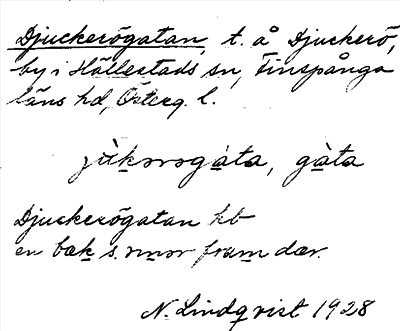 Djuckerögatan, t. å Djuckerö,
by i Hällestads sn, Finspånga
läns hd, Österg. l.
jùkorogàta, gàta
Djuckerögatan kb
en bæk s. rnor fram dær.
N. Lindqvist 1928